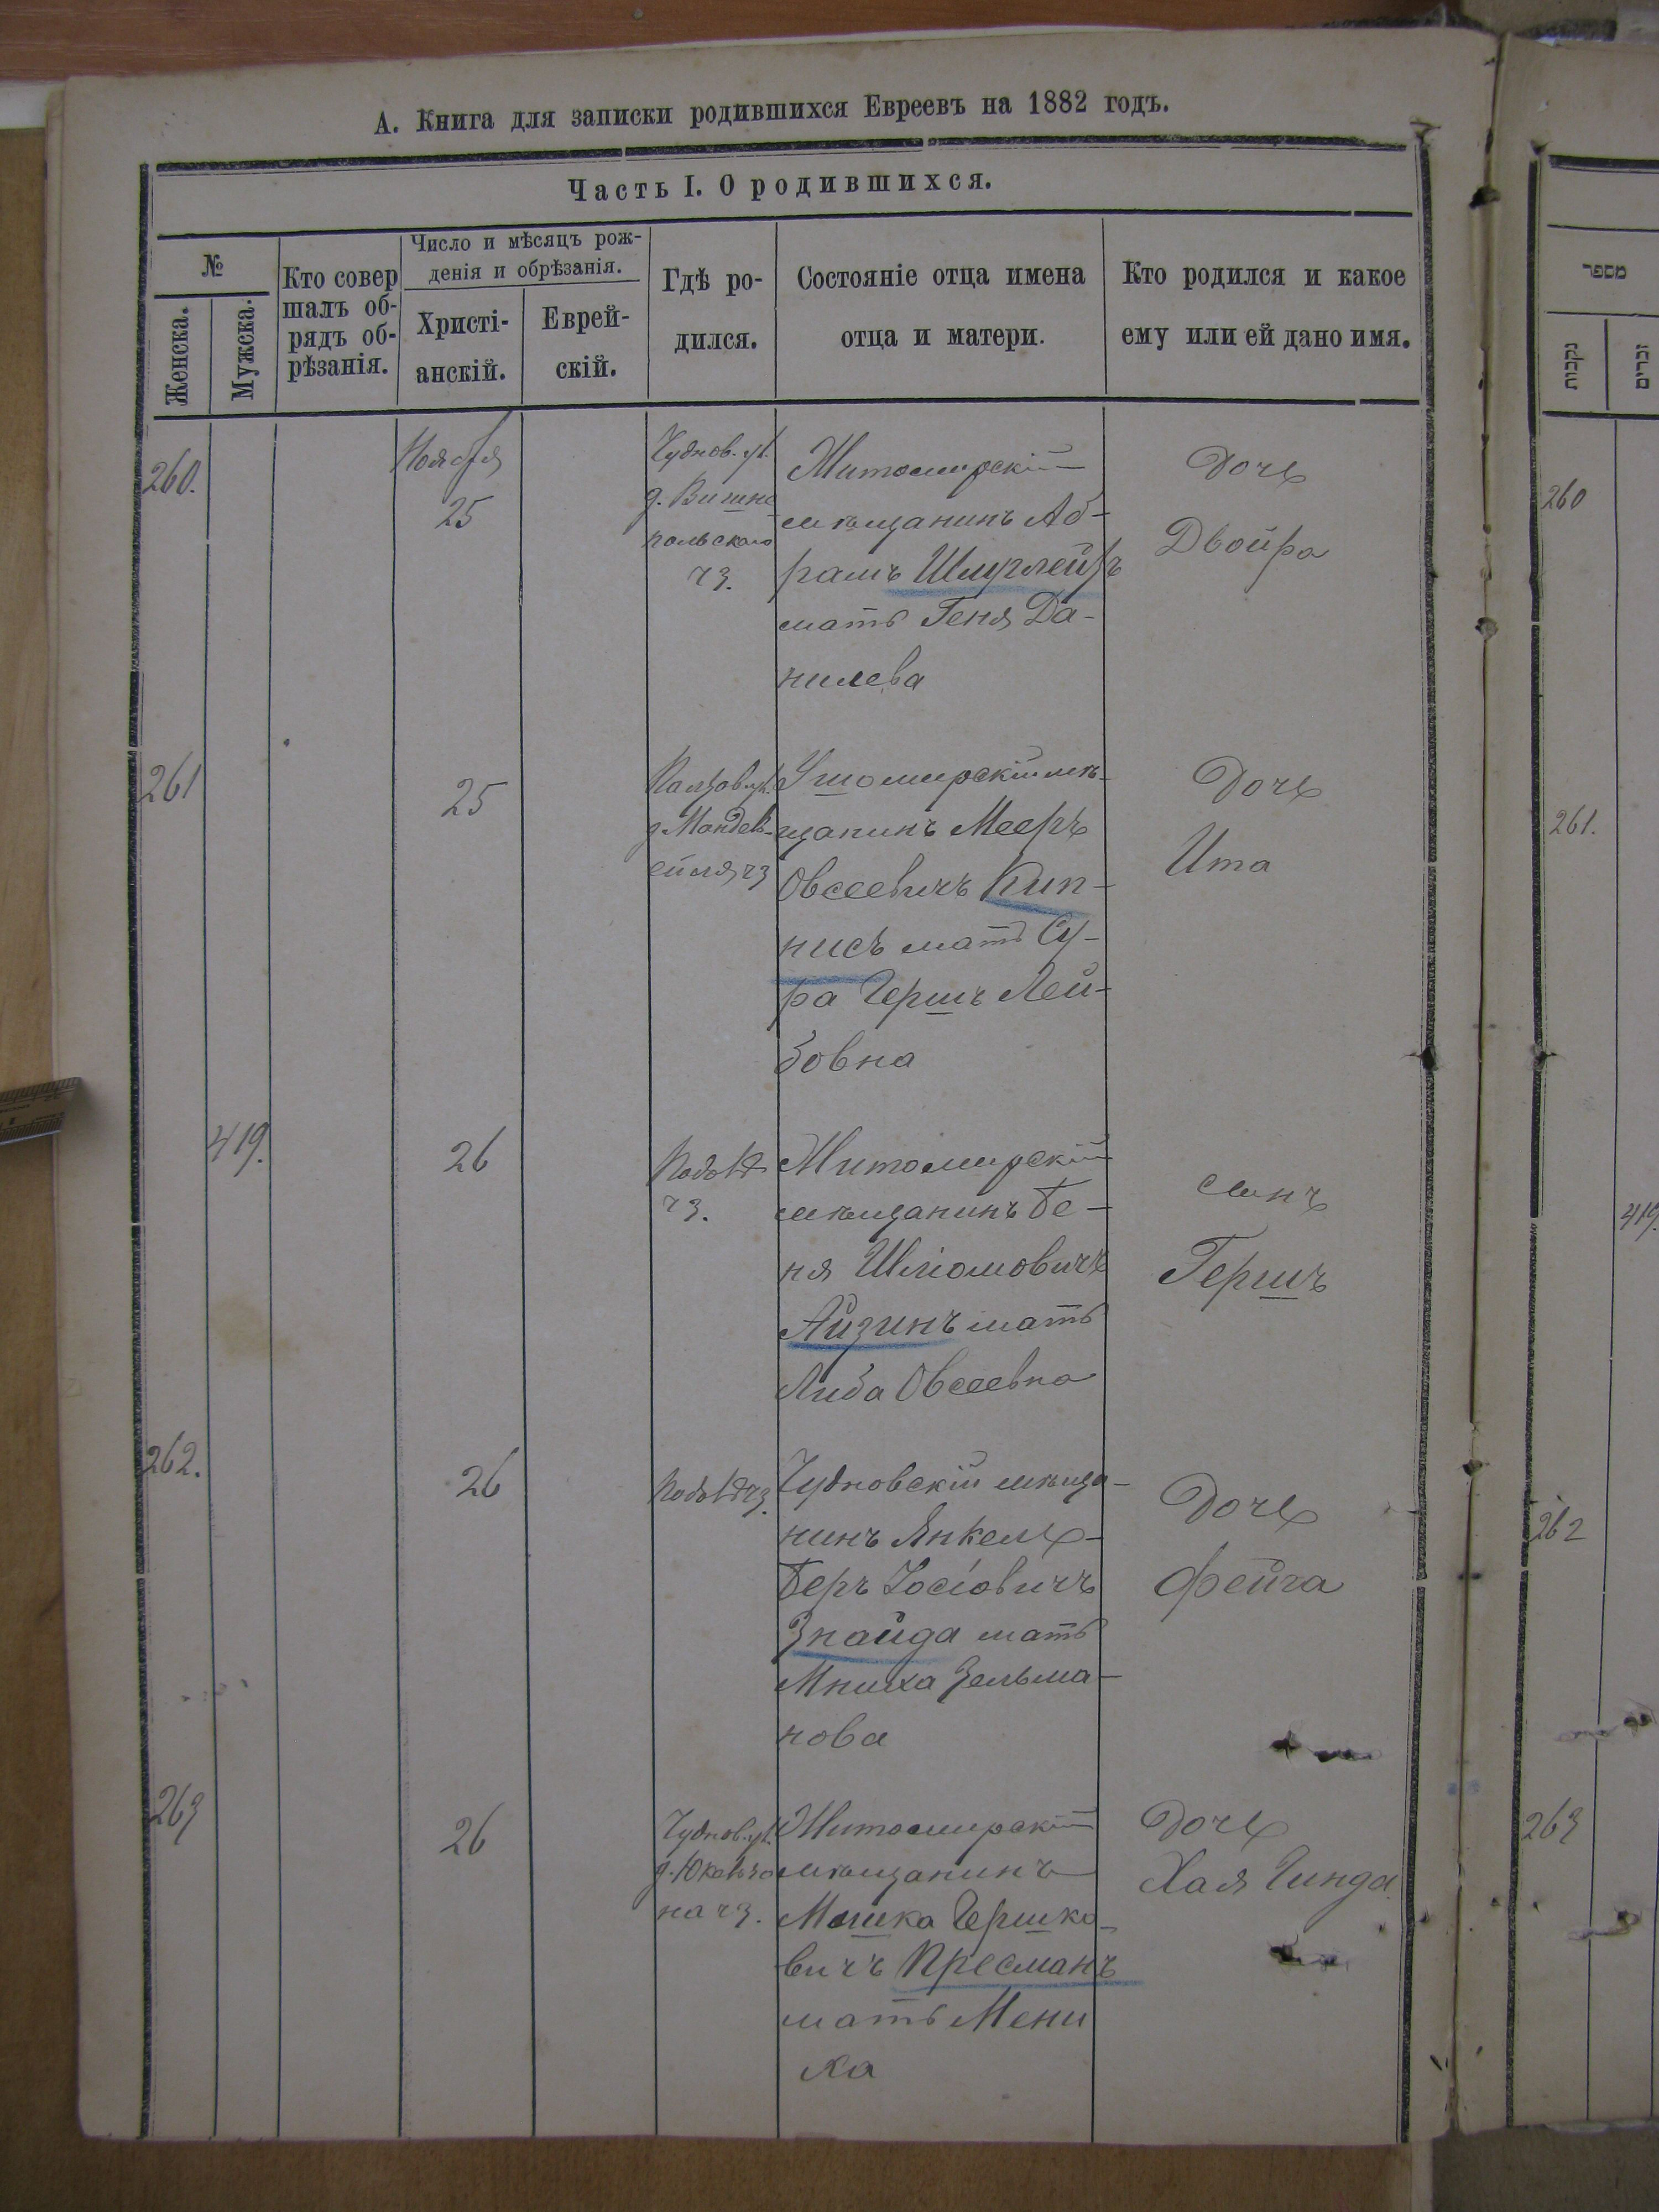 А. Книга для записки родившихся Евреевъ на 1882 годъ.
Часть I. О родившихся.
№
Женска.
Мужска.
Кто совер
шалъ об-
рядъ об-
рѣзанія.
Число и мѣсяцъ рож-
денія и обрѣзанія.
Христі-
анскій.
Еврей-
скій.
Гдѣ ро-
дился.
Состояніе отца имена
отца и матери.
Кто родился и какое
ему или ей дано имя.
260.
Ноября
25
Чуднов. ул.
д. Вишне
польскаго
чз.
Житомирскій
мѣщанинъ Аб-
рамъ Шмуглейръ
мать Геня Да-
нилева
Дочь
Двойра
261
25
Ушомирскій мѣ-
щанинъ Мееръ
Овсеевичъ Кип-
нисъ мать Су-
ра Гершъ Лей-
бовна
Дочь
Ита
419.
26
чз.
Житомирскій
мѣщанинъ Бе-
ня Шліомовичъ
Айзинъ мать
Либа Овсеевна
сынъ
Гершъ
262.
26
Чудновскій мѣща-
нинъ Янкель-
Беръ Іосіовичъ
Знайда мать
Мниха Зельма-
нова
Дочь
Фейга
263
26
Чуднов. ул.
на чз.
Житомирскій
мѣщанинъ
Мошка Гершко-
вичъ Пресманъ
мать Мени
ха
Дочь
Хая Гинда
מספר
נקבות
זכרים
260
261.
419.
262
263